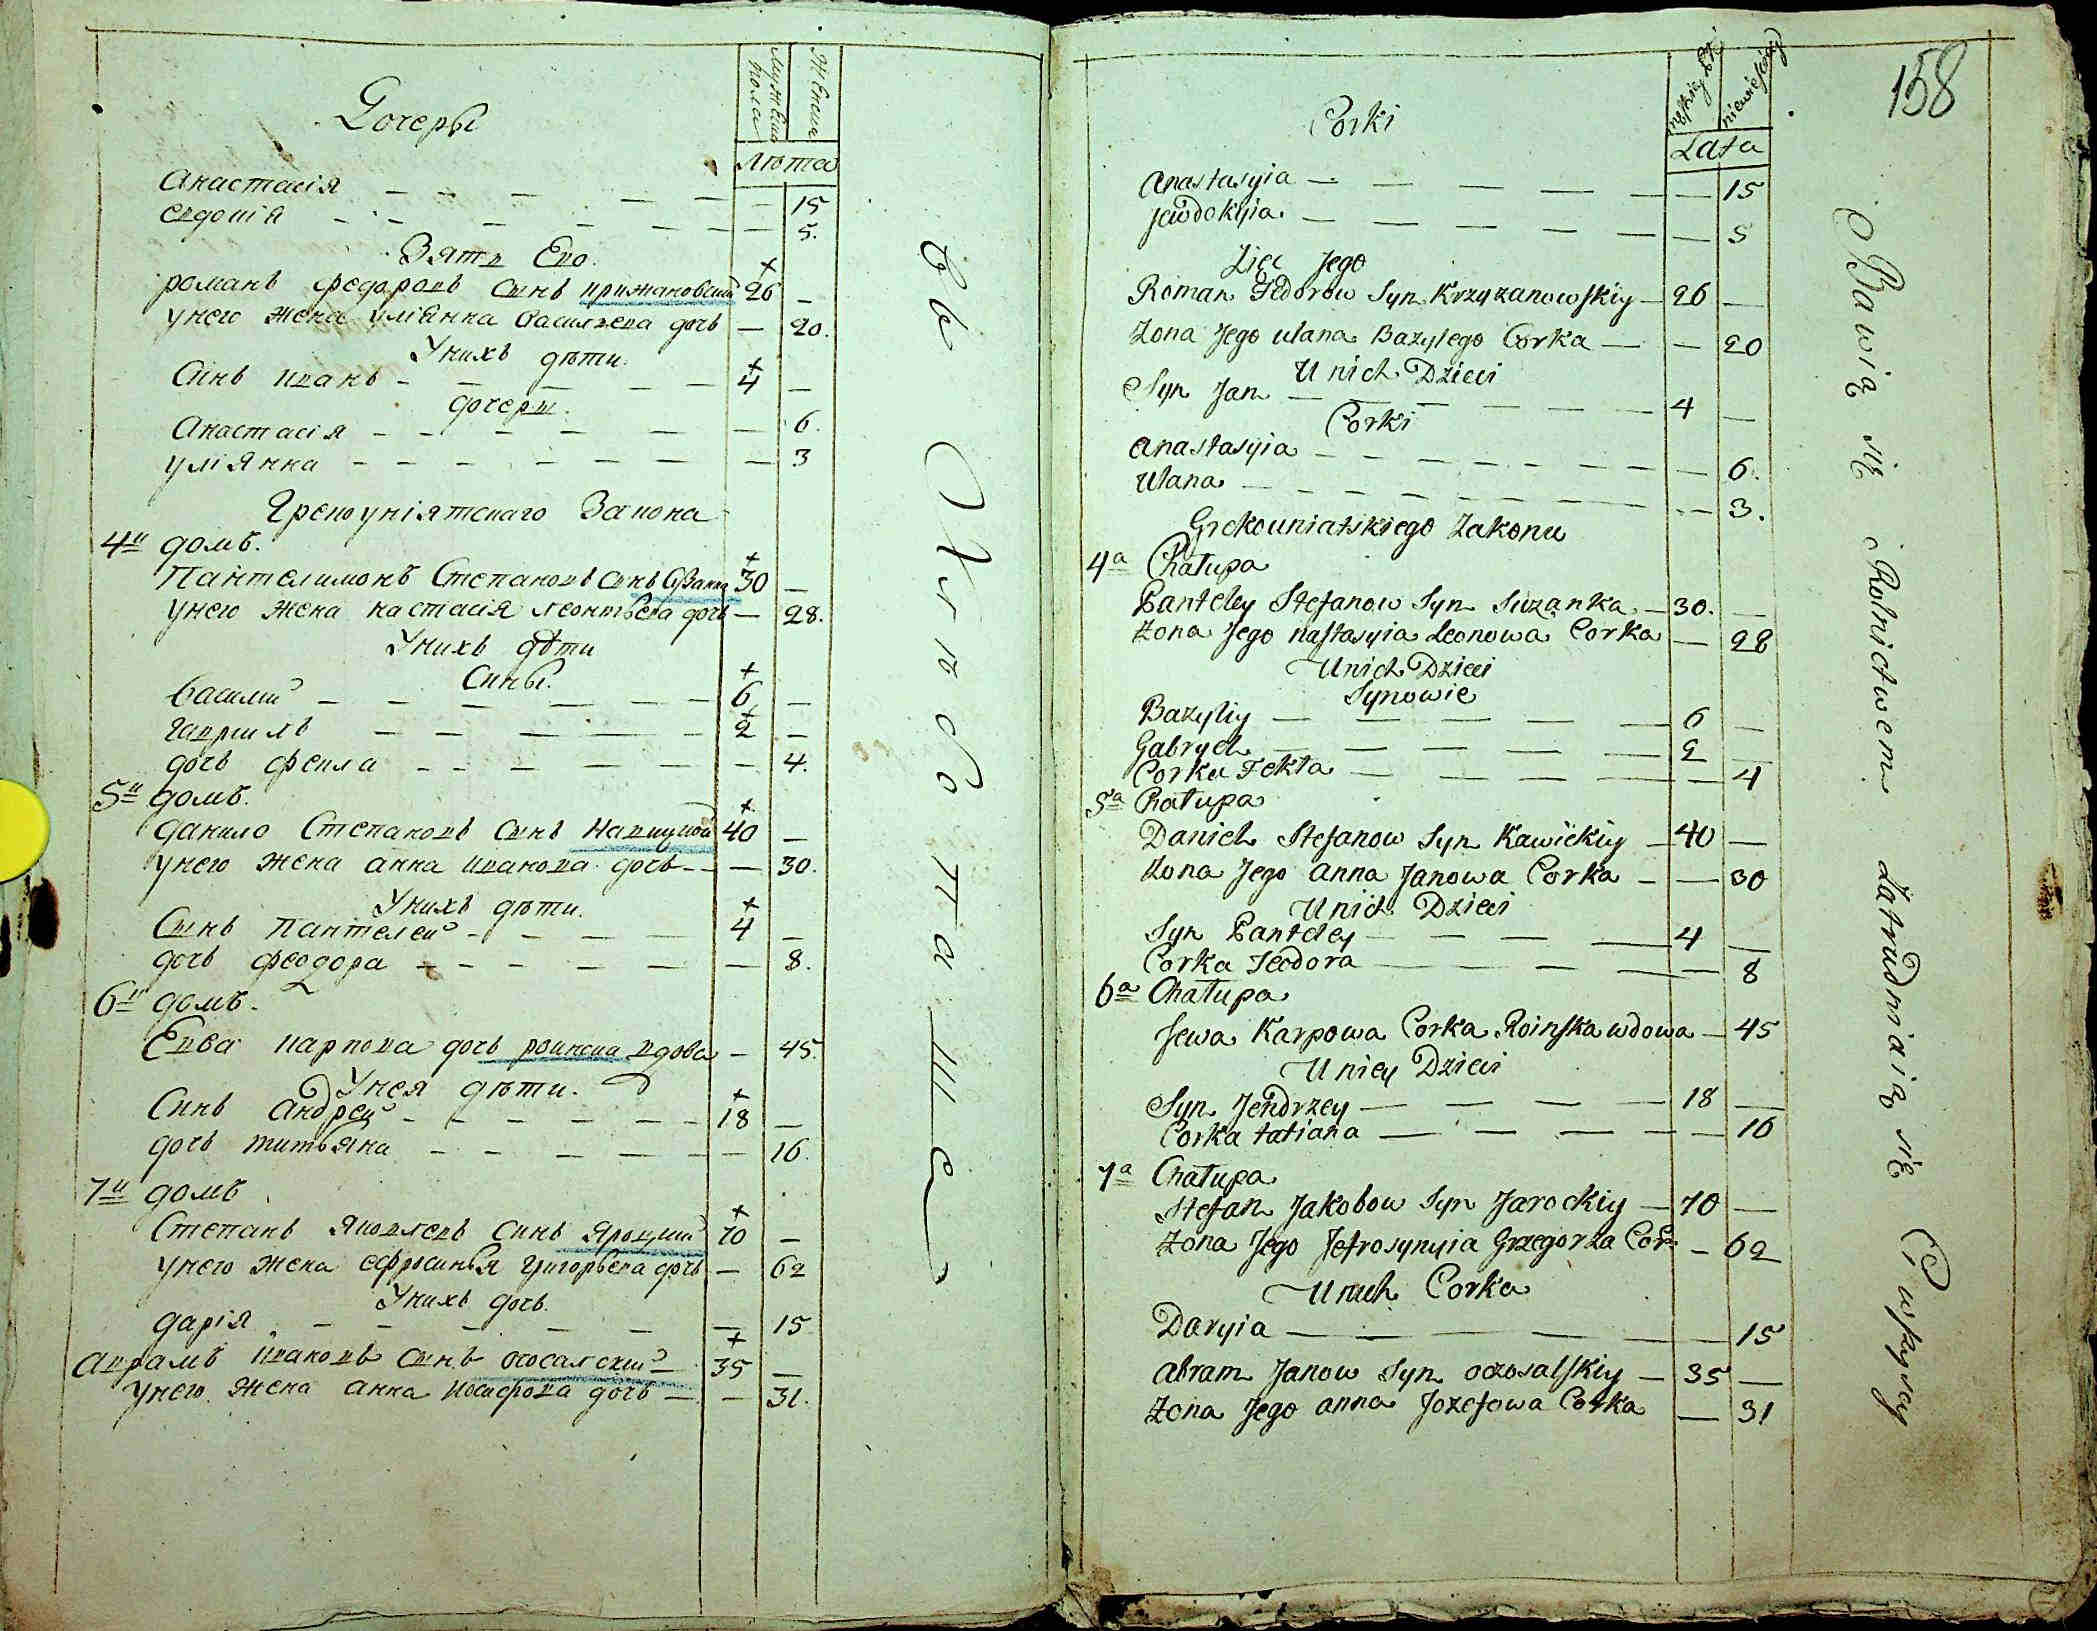 Дочеры
Мужеска пола
Женска
Лѣта
Анастасія 15
Евдокія 5.
Зять Его.
романъ федоровъ сынъ крижановский 26
унего жена уліянна васильева дочь 20.
Унихъ дѣти.
Синъ иванъ 4
дочеры.
Анастасія 6.
уліянна 3
Грекоуніятскаго Закона
4й домъ.
Пантелимонъ Степановъ сынъ 30
унего жена настасія леонтьева дочь 28.
Унихъ дѣти
Сины.
василий 6
гавриилъ 2
дочь фекла 4.
5й домъ.
данило Степановъ сынъ кавицкой 40
унего жена анна иванова дочь 30.
Унихъ дѣти.
Сынъ пантелей 4
дочь феодора 8.
6й домъ.
Евва карпова дочь роинска вдова 45.
Унея дѣти.
Синъ андрей 18
дочь титьяна 16.
7й домъ
Степанъ Яковлевъ синъ яроцкий 70
унего жена ефросинья григорьева дочь 62
Унихъ дочь.
дарія 15
аврамъ ивановъ сынъ ососалский 35
унего жена анна иосифова дочь 31.
въ Хлѣбопашцѣ
158
Corki
męskiey płci
niewieściey
Lata
Anastasyia 15
Jewdokyia 5
Zięć Jego
Roman Fedorow Syn Krzyżanowskiy 26
Żona Jego Ulana Bazylego Corka 20
U nich Dzieci
Syn Jan 4
Corki
Anastasyia 6.
Ulana 3.
Grekouniatskiego Zakonu
4a Chałupa
Panteley Stefanow Syn Suzanka 30.
Żona Jego nastasyia Leonowa Corka 28
U nich Dzieci
Synowie
Bazyliy 6
Gabryel 2
Corka Fekła 4
5a Chałupa
Daniel Stefanow Syn Kawickiy 40
Żona Jego Anna Janowa Corka 30
U nich Dzieci
Syn Panteley 4
Corka Teodora 8
6a Chałupa
Jewa Karpowa Corka Roinska wdowa 45
U niey Dzieci
Syn Jendrzey 18
Corka tatiana 16
7a Chałupa
Stefan Jakobow Syn Jarockiy 70
Żona Jego Jefrosynyia Grzegorza Cor: 62
U nich Corka
Daryia 15
Abram Janow Syn oczosalskiy 35
Żona Jego anna Jozefowa Corka 31
Bawią się Rolnictwem Zatrudniaią się Ci wszyscy